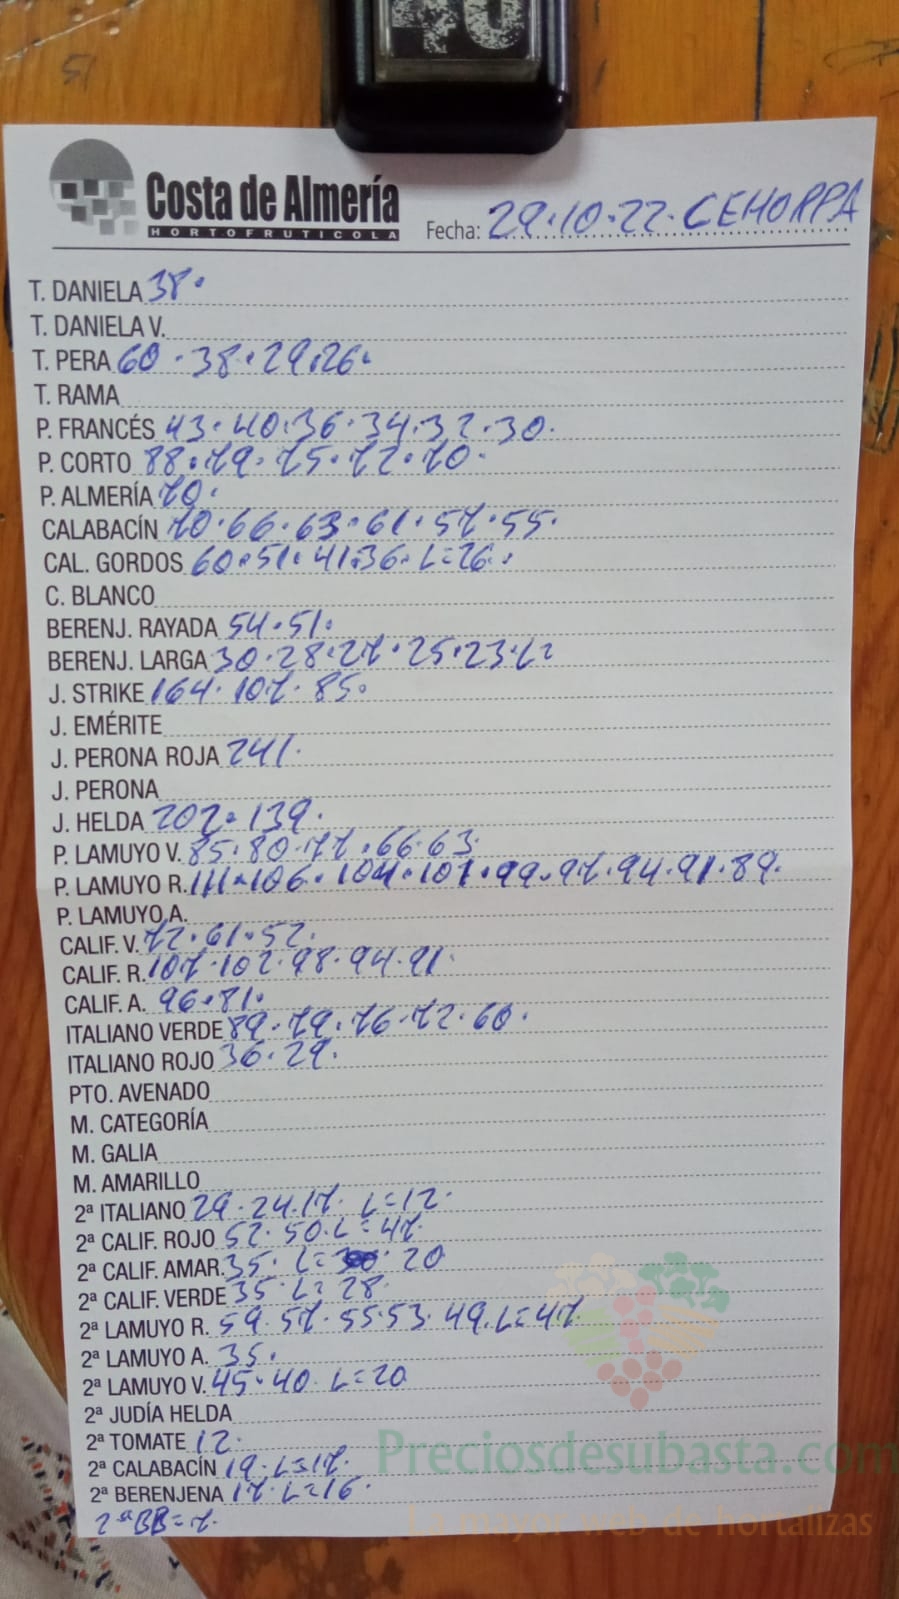 Costa de Almería
HORTOFRUTICOLA
Fecha: 29·10·22· CEHORPA
T. DANIELA 38·
T. DANIELA V.
T. PERA 60·38·29·26·
T. RAMA
P. FRANCÉS 43·40·36·34·32·30·
P. CORTO 88·79·75·72·70·
P. ALMERÍA 70·
CALABACÍN 70·66·63·61·57·55·
CAL. GORDOS 60·51·41·36·L=26·
C. BLANCO
BERENJ. RAYADA 54·51·
BERENJ. LARGA 30·28·27·25·23·L=
J. STRIKE 164·107·85·
J. EMÉRITE
J. PERONA ROJA 241·
J. PERONA
J. HELDA 202·139·
P. LAMUYO V. 85·80·77·66·63·
P. LAMUYO R. 111·106·104·101·99·97·94·91·89·
P. LAMUYO A.
CALIF. V. 72·61·52·
CALIF. R. 107·102·98·94·91·
CALIF. A. 96·81·
ITALIANO VERDE 89·79·76·72·60·
ITALIANO ROJO 36·29·
PTO. AVENADO
M. CATEGORÍA
M. GALIA
M. AMARILLO
2ª ITALIANO 29·24·17· L=12·
2ª CALIF. ROJO 52·50·L=47·
2ª CALIF. AMAR. 35· L= 20
2ª CALIF. VERDE 35·L= 28
2ª LAMUYO R. 59·57·55·53·49·L=47·
2ª LAMUYO A. 35·
2ª LAMUYO V. 45·40·L=20
2ª JUDÍA HELDA
2ª TOMATE 12·
2ª CALABACÍN 19·L=17·
2ª BERENJENA 17·L=16·
2ªBB=7·
Preciosdesubasta.com
La mayor web de hortalizas